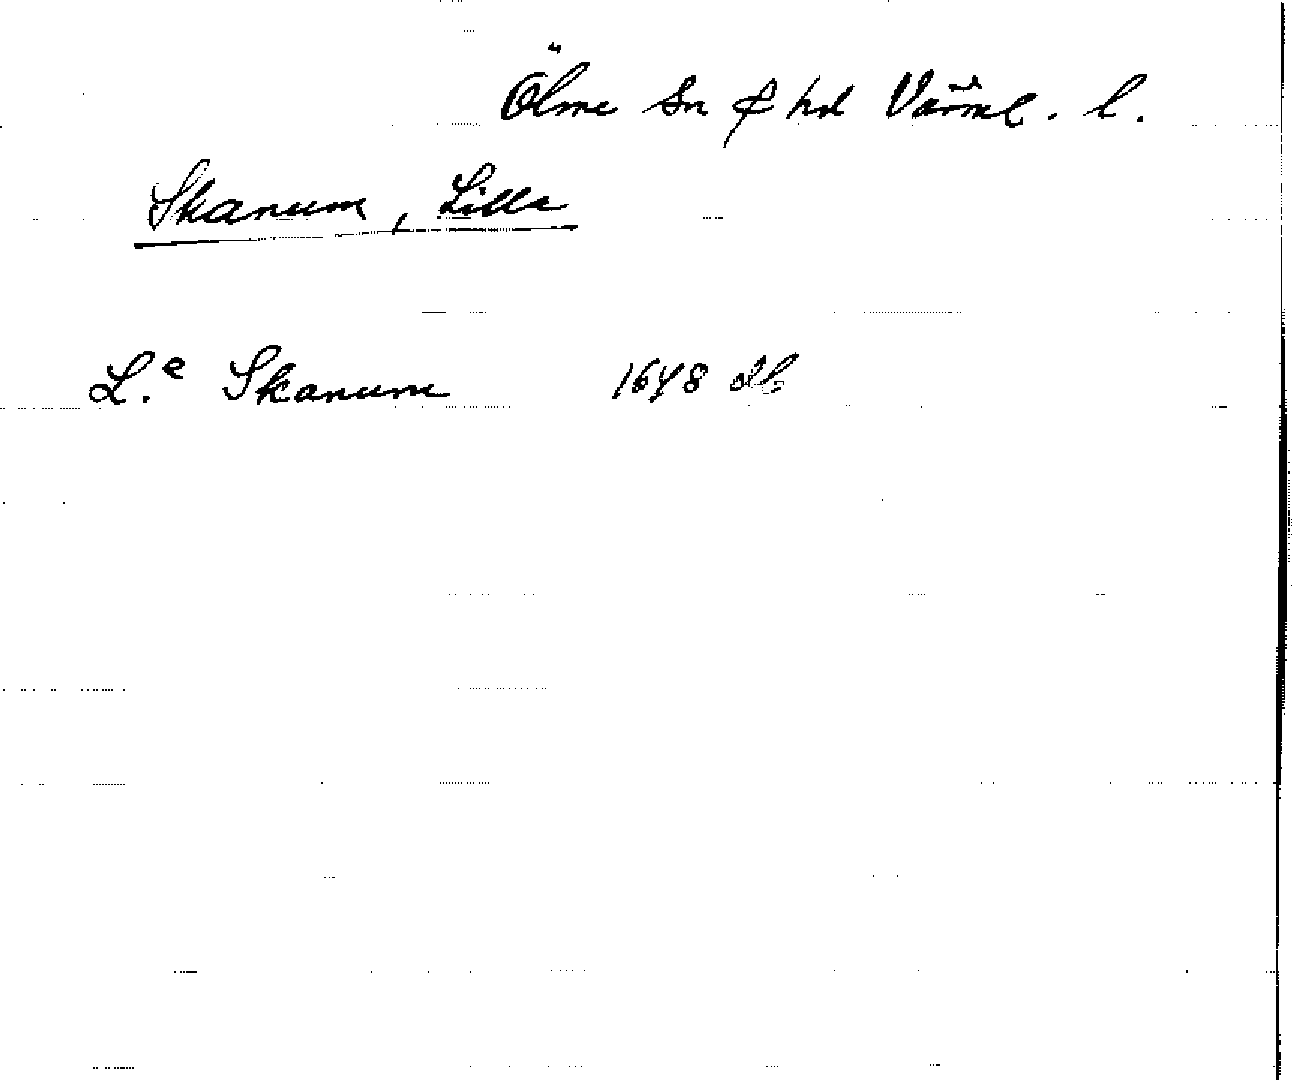 Ölme Sn & hd Värml. l.
Skanum, Lilla
L.e Skanum 1648